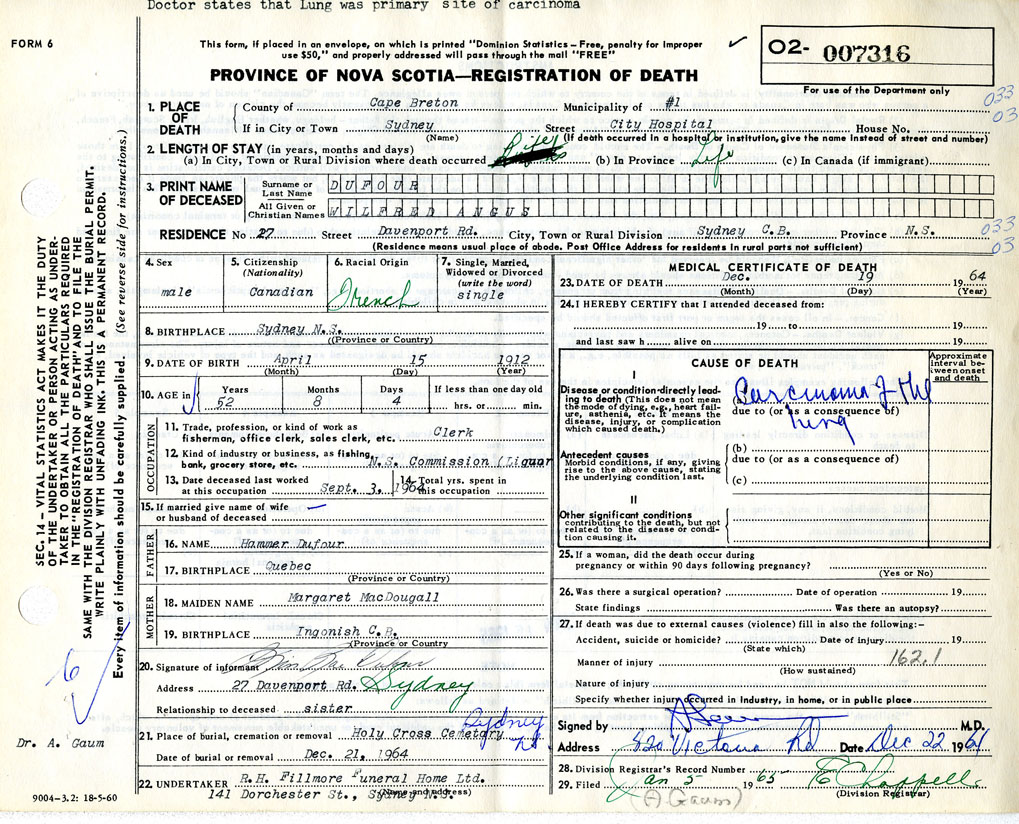 Doctor states that Lung was primary site of carcinoma
FORM 6
This form, if placed in an envelope, on which is printed "Dominion Statistics – Free, penalty for improper
use $50," and properly addressed will pass through the mail "FREE"
PROVINCE OF NOVA SCOTIA—REGISTRATION OF DEATH
O2- 007316
For use of the Department only
033
03
1. PLACE OF DEATH
County of Cape Breton Municipality of #1
If in City or Town Sydney Street City Hospital House No.
(Name) (If death occurred in a hospital or institution, give the name instead of street and number)
2. LENGTH OF STAY (in years, months and days)
(a) In City, Town or Rural Division where death occurred Life (b) In Province Life (c) In Canada (if immigrant)
3. PRINT NAME OF DECEASED
Surname or Last Name DUFOUR
All Given or Christian Names WILFRED ANGUS
RESIDENCE No 27 Street Davenport Rd. City, Town or Rural Division Sydney C.B. Province N.S.
(Residence means usual place of abode. Post Office Address for residents in rural parts not sufficient)
033
03
4. Sex male
5. Citizenship (Nationality) Canadian
6. Racial Origin French
7. Single, Married, Widowed or Divorced (write the word) single
8. BIRTHPLACE Sydney N.S.
((Province or Country)
9. DATE OF BIRTH April 15 1912
(Month) (Day) (Year)
10. AGE in Years 52 Months 8 Days 4 If less than one day old hrs. or min.
OCCUPATION
11. Trade, profession, or kind of work as fisherman, office clerk, sales clerk, etc. Clerk
12. Kind of industry or business, as fishing, bank, grocery store, etc. N.S. Commission (Liquor
13. Date deceased last worked at this occupation Sept. 3, 1964
14. Total yrs. spent in this occupation
15. If married give name of wife or husband of deceased —
FATHER
16. NAME Hammer Dufour
17. BIRTHPLACE Quebec
(Province or Country)
MOTHER
18. MAIDEN NAME Margaret MacDougall
19. BIRTHPLACE Ingonish C.B.
(Province or Country)
20. Signature of informant
Address 27 Davenport Rd. Sydney
Relationship to deceased sister
21. Place of burial, cremation or removal Holy Cross Cemetery Sydney N.S.
Date of burial or removal Dec. 21, 1964
22. UNDERTAKER R.H. Fillmore Funeral Home Ltd.
141 Dorchester St., Sydney N.S.
(Name and address)
MEDICAL CERTIFICATE OF DEATH
23. DATE OF DEATH Dec. 19 64
(Month) (Day) (Year)
24. I HEREBY CERTIFY that I attended deceased from:
19 to 19
and last saw h alive on 19
CAUSE OF DEATH
Approximate interval between onset and death
I
Disease or condition directly leading to death (This does not mean the mode of dying, e.g., heart failure, asthenia, etc. It means the disease, injury, or complication which caused death.)
(a) Carcinoma of the lung
due to (or as a consequence of)
(b)
due to (or as a consequence of)
(c)
Antecedent causes
Morbid conditions, if any, giving rise to the above cause, stating the underlying condition last.
II
Other significant conditions
contributing to the death, but not related to the disease or condition causing it.
25. If a woman, did the death occur during
pregnancy or within 90 days following pregnancy?
(Yes or No)
26. Was there a surgical operation? Date of operation 19
State findings Was there an autopsy?
27. If death was due to external causes (violence) fill in also the following:–
Accident, suicide or homicide? Date of injury 19
(State which)
Manner of injury 162.1
(How sustained)
Nature of injury
Specify whether injury occurred in industry, in home, or in public place
Signed by A Gaum M.D.
Address 820 Victoria Rd Date Dec 22 1964
28. Division Registrar's Record Number
29. Filed Jan 5 1965 E Chappell
(Division Registrar)
(A Gaum)
SEC. 14 – VITAL STATISTICS ACT MAKES IT THE DUTY
OF THE UNDERTAKER OR PERSON ACTING AS UNDER-
TAKER TO OBTAIN ALL THE PARTICULARS REQUIRED
IN THE "REGISTRATION OF DEATH" AND TO FILE THE
SAME WITH THE DIVISION REGISTRAR WHO SHALL ISSUE THE BURIAL PERMIT.
WRITE PLAINLY WITH UNFADING INK. THIS IS A PERMANENT RECORD.
Every item of information should be carefully supplied. (See reverse side for instructions.)
6
Dr. A. Gaum
9004-3.2: 18-5-60